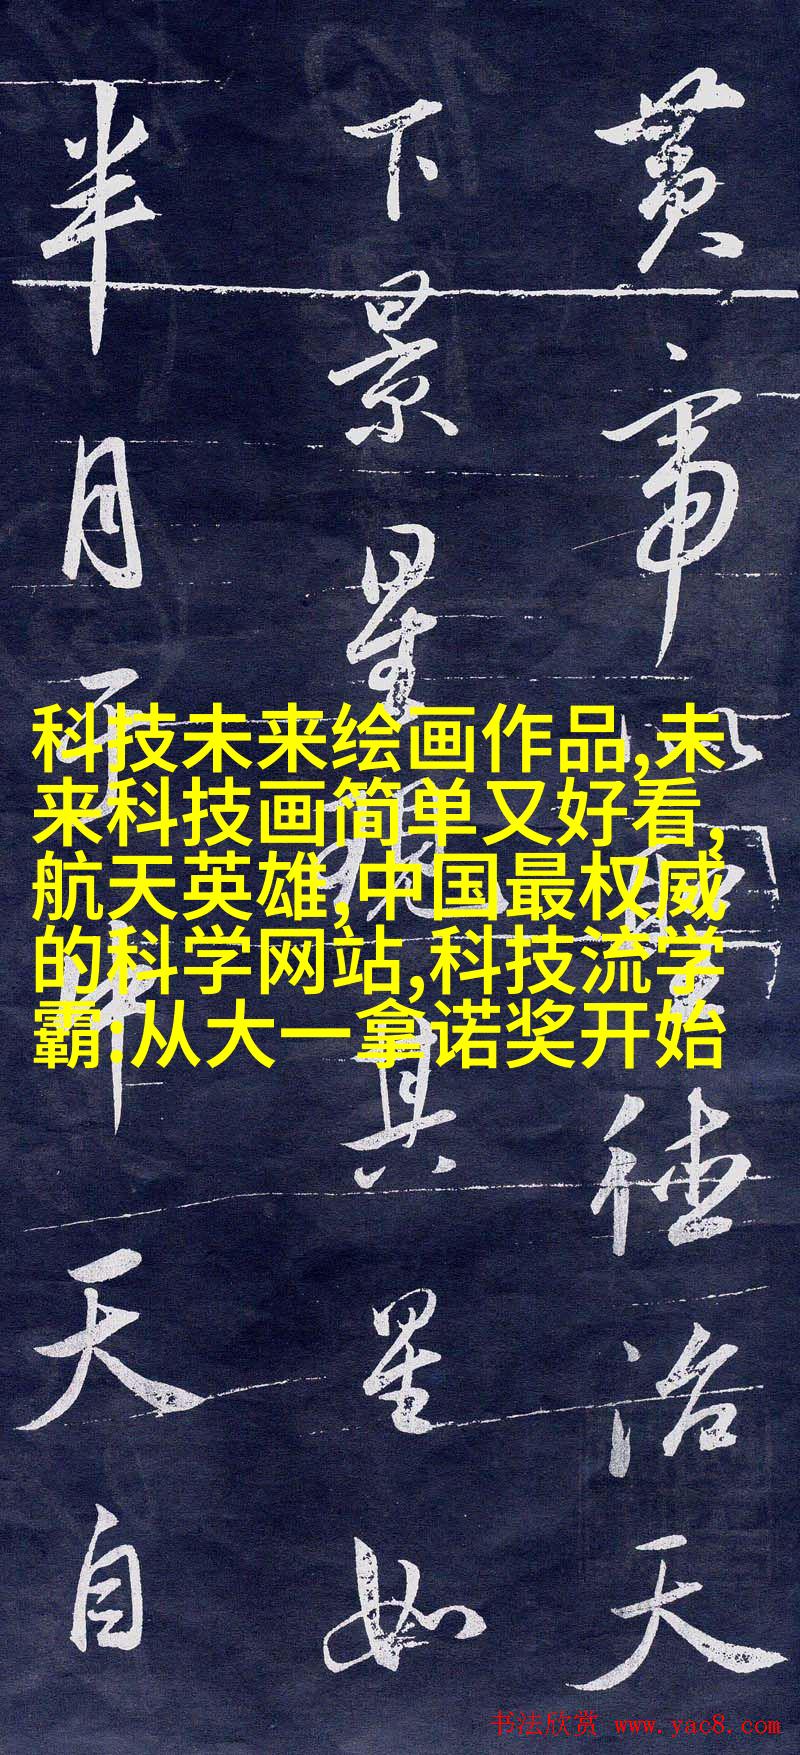 黄帝以聖德治天
下景星現其星如
半月于中天自
科技未来绘画作品,未
来科技画简单又好看,
航天英雄,中国最权威
的科学网站,科技流学
霸:从大一拿诺奖开始
书法欣赏 www.yac8.com